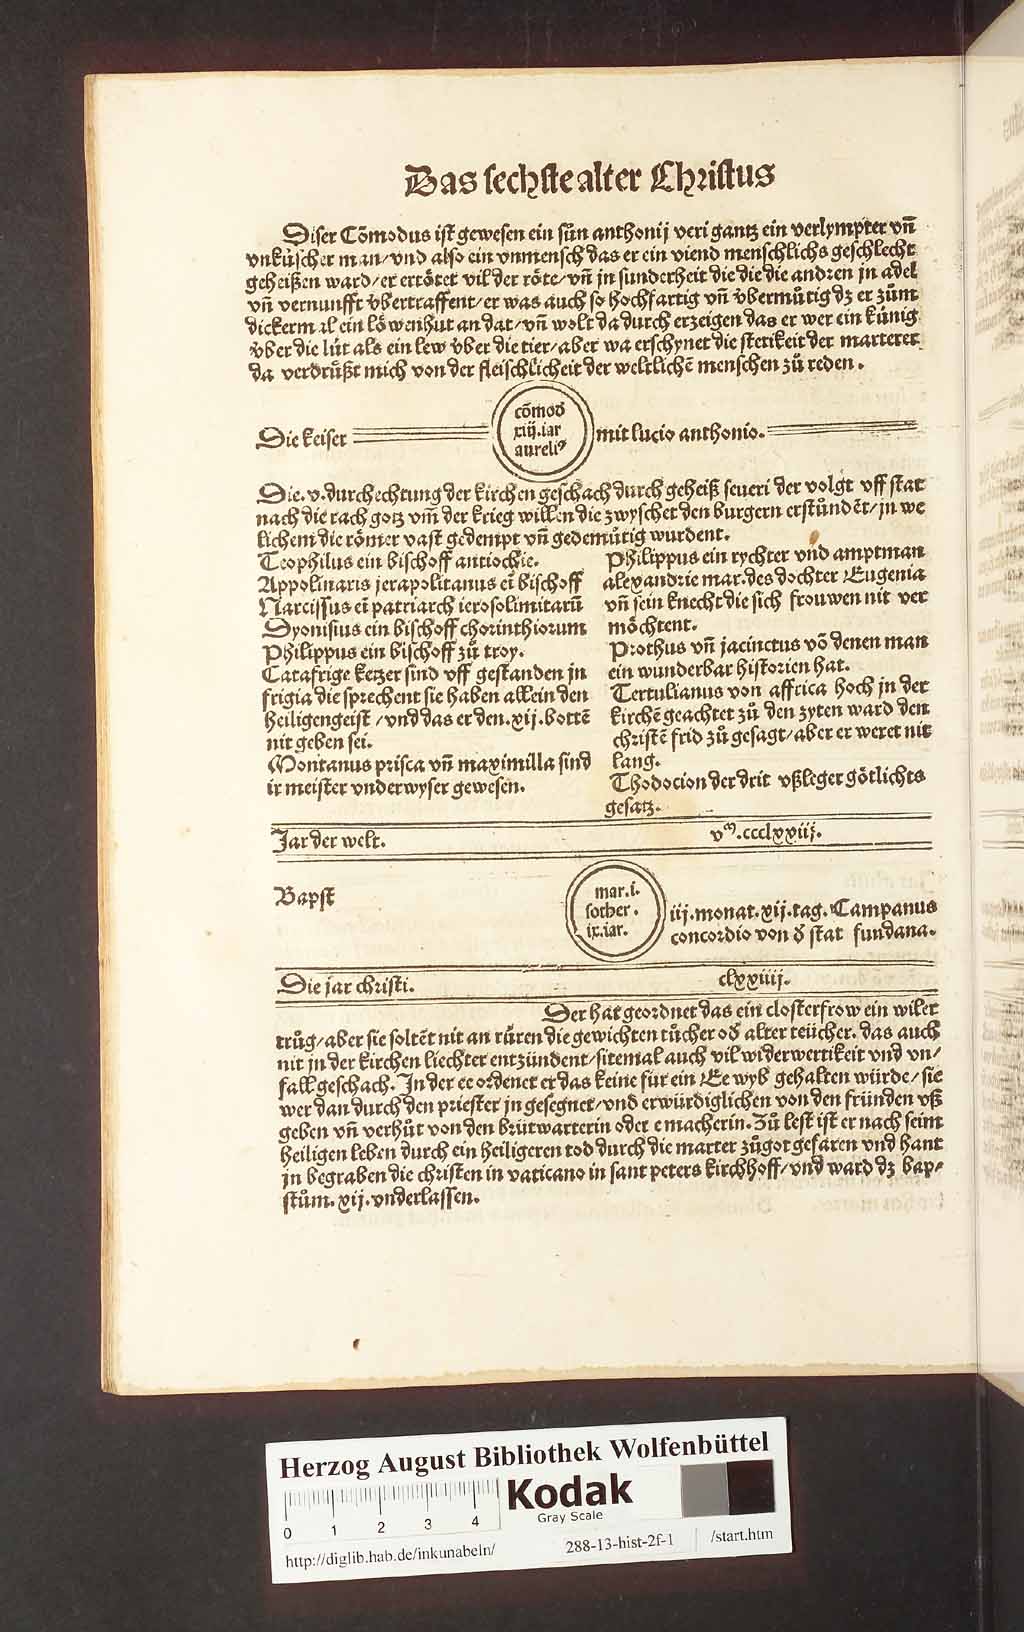 Das sechste alter Christus
Diser Cõmodus ist gewesen ein sůn anthonij veri gantz ein verlympter vñ
vnkůscher man/vnd also ein vnmensch das er ein viend menschlichs geschlecht
geheißen ward/er ertötet vil der röte/vñ jn sunderheit die die die andren jn adel
vñ vernunfft v̈bertraffent/er was auch so hochfartig vñ v̈bermůtig dz er zům
dickermal ein löwenhut an dat/vñ wolt dadurch erzeigen das er wer ein kúnig
v̈ber die lút als ein lew v̈ber die tier/aber wa erschynet die sterikeit der marterer
da verdrůßt mich von der fleischlicheit der weltlichẽ menschen zů reden.
Die keiser
cõmod
xiij.iar
aureliꝰ
mit lucio anthonio.
Die.v.durchechtung der kirchen geschach durch geheiß seueri der volgt vff stat
nach die rach gotz vm̃ der krieg willen die zwyschet den burgern erstůndẽt/jn we
lichem die römer vast gedempt vñ gedemůtig wurdent.
Teophilus ein bischoff antiochie.
Appolinaris jerapolitanus eĩ bischoff
Narcissus eĩ patriarch ierosolimitarũ
Dyonisius ein bischoff chorinthiorum
Philippus ein bischoff zů troy.
Catafrige ketzer sind vff gestanden jn
frigia die sprechent sie haben allein den
heiligengeist/vnd das er den.xij.bottẽ
nit geben sei.
Montanus prisca vñ maximilla sind
ir meister vnderwyser gewesen.
Philippus ein rychter vnd amptman
alexandrie mar.des dochter Eugenia
vñ sein knecht die sich frouwen nit ver
möchtent.
Prothus vñ jacinctus võ denen man
ein wunderbar historien hat.
Tertulianus von affrica hoch jn der
kirchẽ geachtet zů den zyten ward den
christẽ frid zů gesagt/aber er weret nit
lang.
Thodocion der drit vßleger götlichs
gesatz.
Jar der welt. vᵐ.ccclxxiij.
Bapst
mar.i.
sother.
ix.iar.
iij.monat.xij.tag.Campanus
concordio von d̓ stat fundana.
Die jar christi. clxxiiij.
Der hat geordnet das ein closterfrow ein wiler
trůg/aber sie soltẽt nit an růren die gewichten tůcher od̓ alter teücher. das auch
nit jn der kirchen liechter entzündent/sitemal auch vil widerwertikeit vnd vn/
fall geschach. Jn der ee ordenet er das keine für ein Ee wyb gehalten würde/sie
wer dan durch den priester jn gesegnet/vnd erwürdiglichen von den fründen vß
geben vñ verhůt von den brütwarterin oder e macherin. Zů lest ist er nach seim
heiligen leben durch ein heiligeren tod durch die marter zů got gefaren vnd hant
jn begraben die christen in vaticano in sant peters kirchhoff/vnd ward dz bap/
stům.xij.vnderlassen.
Herzog August Bibliothek Wolfenbüttel
0 1 2 3 4
Kodak
Gray Scale
http://diglib.hab.de/inkunabeln/ 288-13-hist-2f-1 /start.htm